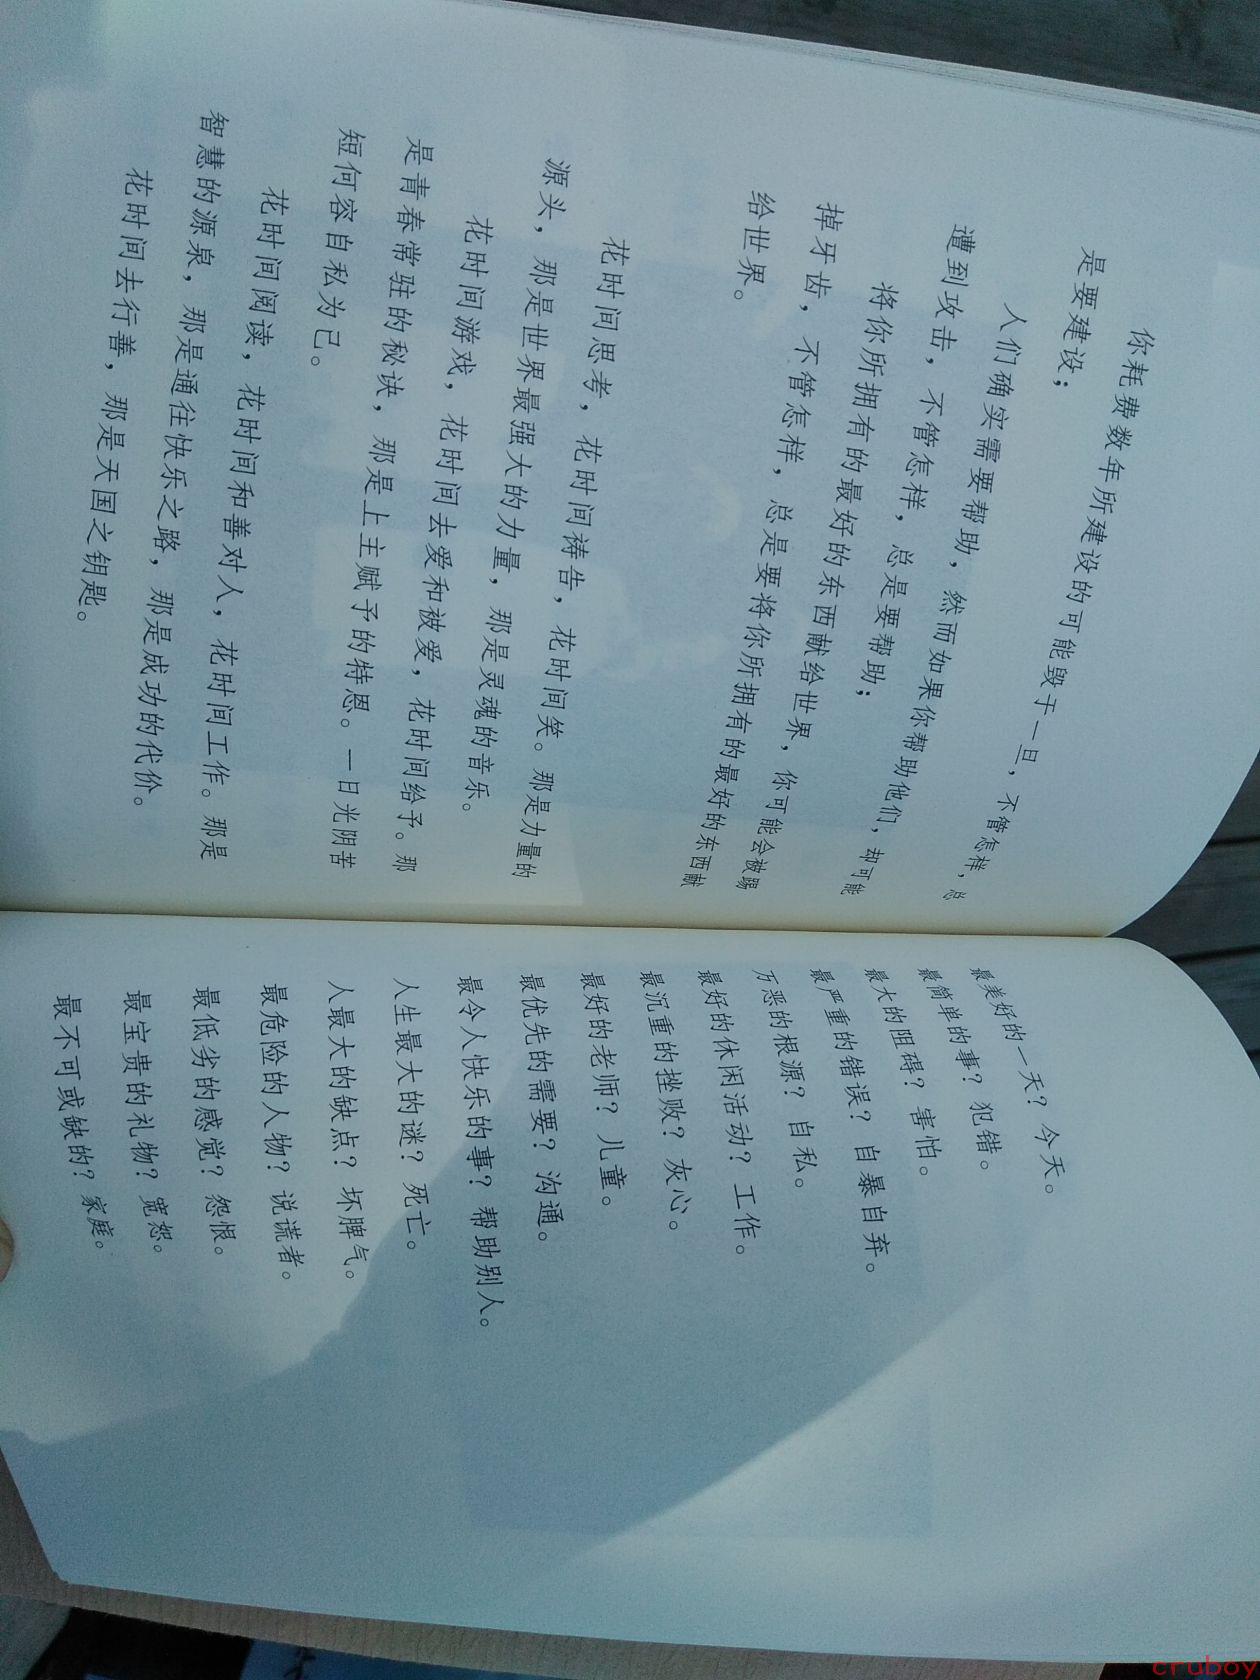 你耗费数年所建设的可能毁于一旦，不管怎样，总
是要建设；
人们确实需要帮助，然而如果你帮助他们，却可能
遭到攻击，不管怎样，总是要帮助；
将你所拥有的最好的东西献给世界，你可能会被踢
掉牙齿，不管怎样，总是要将你所拥有的最好的东西献
给世界。
花时间思考，花时间祷告，花时间笑。那是力量的
源头，那是世界最强大的力量，那是灵魂的音乐。
花时间游戏，花时间去爱和被爱，花时间给予。那
是青春常驻的秘诀，那是上主赋予的特恩。一日光阴苦
短何容自私为己。
花时间阅读，花时间和善对人，花时间工作。那是
智慧的源泉，那是通往快乐之路，那是成功的代价。
花时间去行善，那是天国之钥匙。
最美好的一天？今天。
最简单的事？犯错。
最大的阻碍？害怕。
最严重的错误？自暴自弃。
万恶的根源？自私。
最好的休闲活动？工作。
最沉重的挫败？灰心。
最好的老师？儿童。
最优先的需要？沟通。
最令人快乐的事？帮助别人。
人生最大的谜？死亡。
人最大的缺点？坏脾气。
最危险的人物？说谎者。
最低劣的感觉？怨恨。
最宝贵的礼物？宽恕。
最不可或缺的？家庭。
cruboy